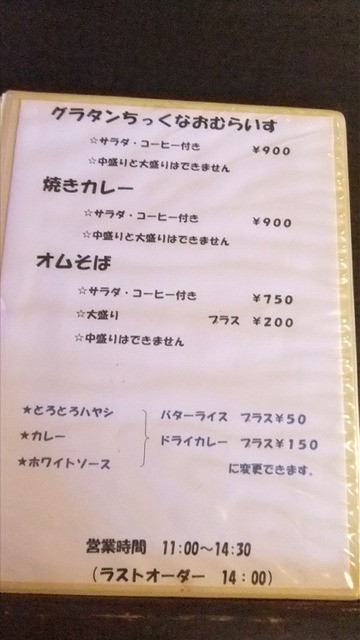 グラタンちっくなおむらいす
☆サラダ・コーヒー付き ￥900
☆中盛りと大盛りはできません
焼きカレー
☆サラダ・コーヒー付き ￥900
☆中盛りと大盛りはできません
オムそば
☆サラダ・コーヒー付き ￥750
☆大盛り プラス ￥200
☆中盛りはできません
★とろとろハヤシ バターライス プラス￥50
★カレー ドライカレー プラス￥150
★ホワイトソース に変更できます。
営業時間 11:00～14:30
（ラストオーダー 14：00）